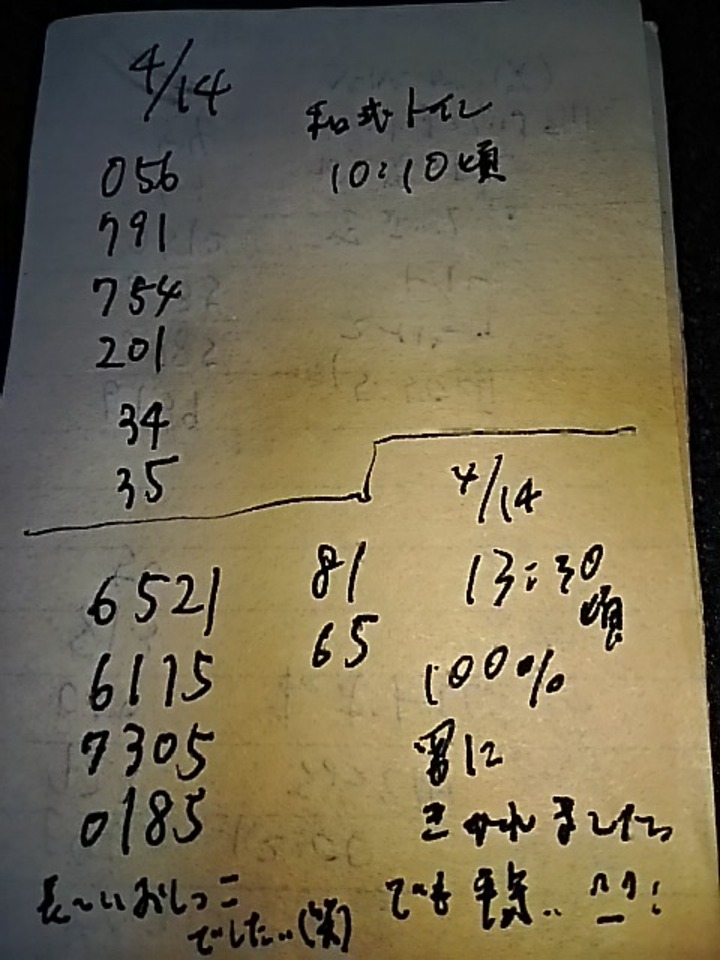 4/14
和式トイレ
10:10頃
056
791
754
201
34
35
4/14
13:30
頃
100%
6521
6175
7305
0185
81
65
胃に
きかれました
長〜いおしっこ
でした..(笑)
でも平気..^^;